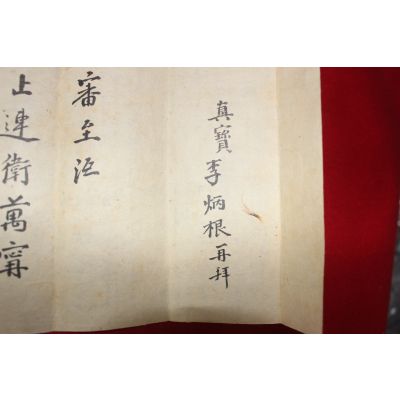 真寶李炳根再拜
審至沍
上連衛萬寗